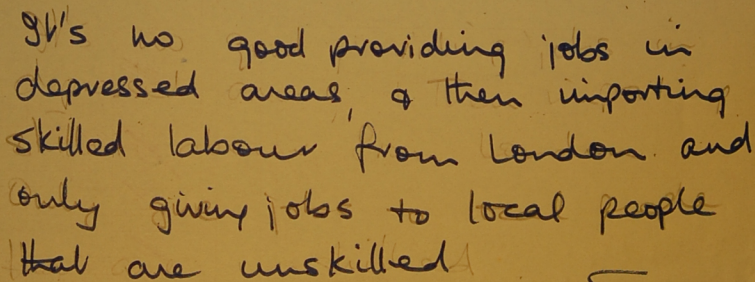 It's no good providing jobs in
depressed areas, & then importing
skilled labour from London and
only giving jobs to local people
that are unskilled